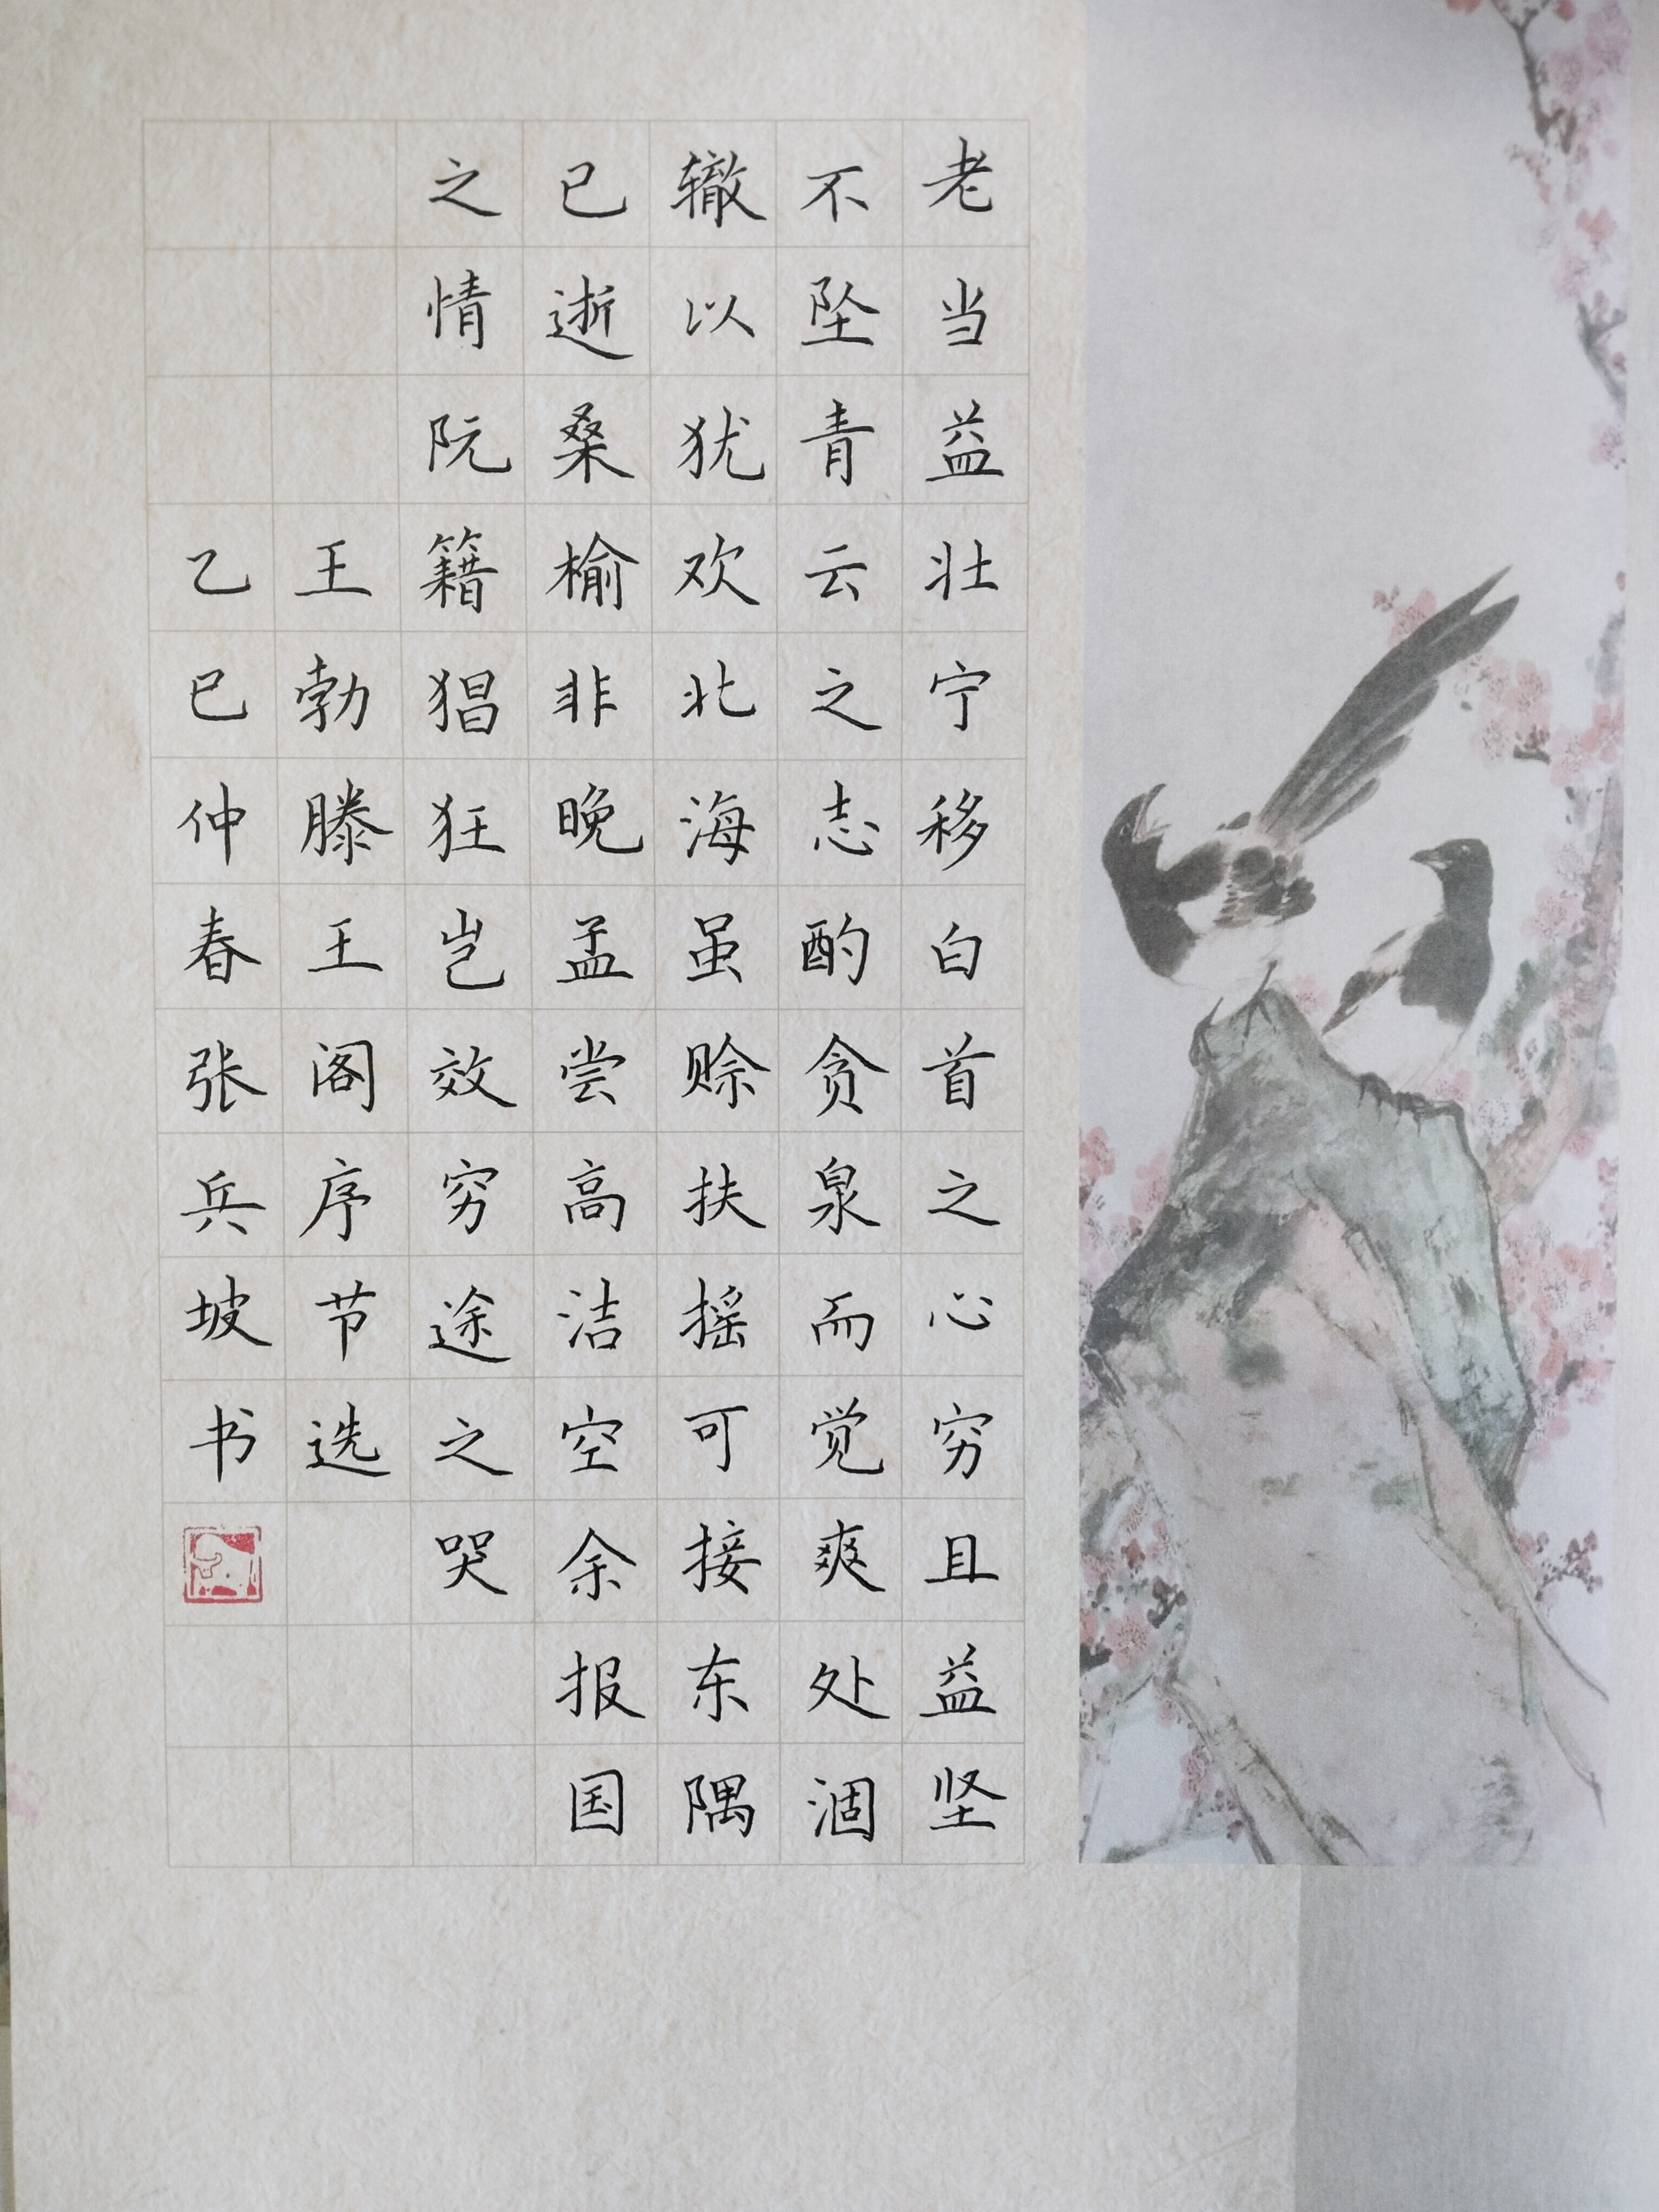 老当益壮宁移白首之心穷且益坚
不坠青云之志酌贪泉而觉爽处涸
辙以犹欢北海虽赊扶摇可接东隅
已逝桑榆非晚孟尝高洁空余报国
之情阮籍猖狂岂效穷途之哭
王勃滕王阁序节选
乙巳仲春张兵坡书